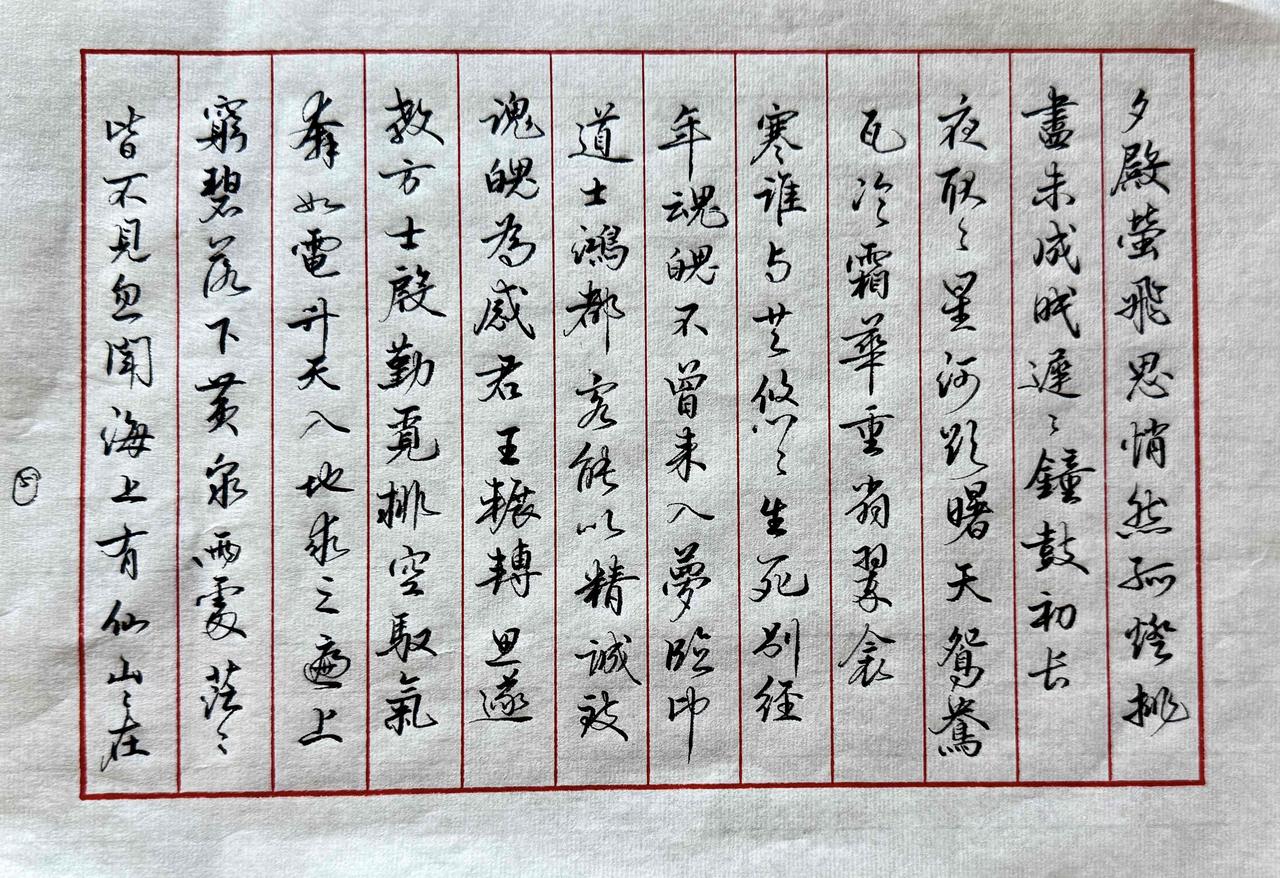 夕殿螢飛思悄然孤燈挑
盡未成眠遲〻鐘鼓初长
夜耿〻星河欲曙天鴛鴦
瓦冷霜華重翡翠衾
寒谁与共悠〻生死别经
年魂魄不曾来入夢臨邛
道士鴻都客能以精誠致
魂魄為感君王輾轉思遂
教方士殷勤覓排空馭氣
奔如電升天入地求之遍上
窮碧落下黄泉兩處茫〻
皆不見忽聞海上有仙山〻在
5